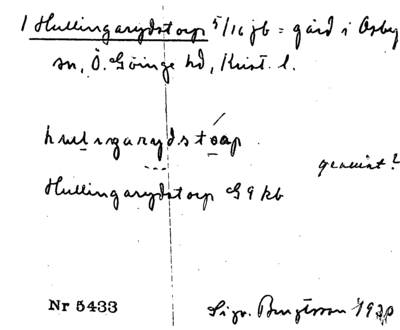 1 Hullingarydstorp 5/16 jb = gård i Osby
sn, Ö. Göinge hd, Krist. l.
hulingarydstoap.
genuint?
Hullingarydstorp G 9 kb
Nr 5433
Sigv. Bengtsson 1930